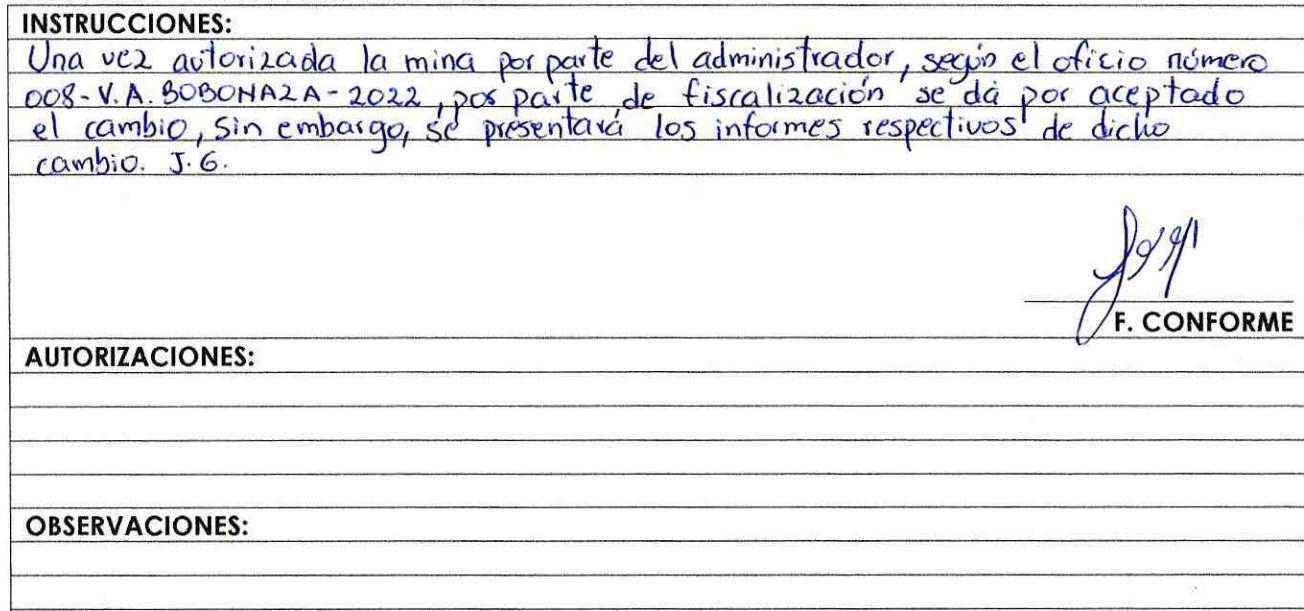 INSTRUCCIONES:
Una vez autorizada la mina por parte del administrador, según el oficio número
008-V.A. BOBONAZA-2022, por parte de fiscalización se dá por aceptado
el cambio, sin embargo, se presentará los informes respectivos de dicho
cambio. J.G.
F. CONFORME
AUTORIZACIONES:
OBSERVACIONES: